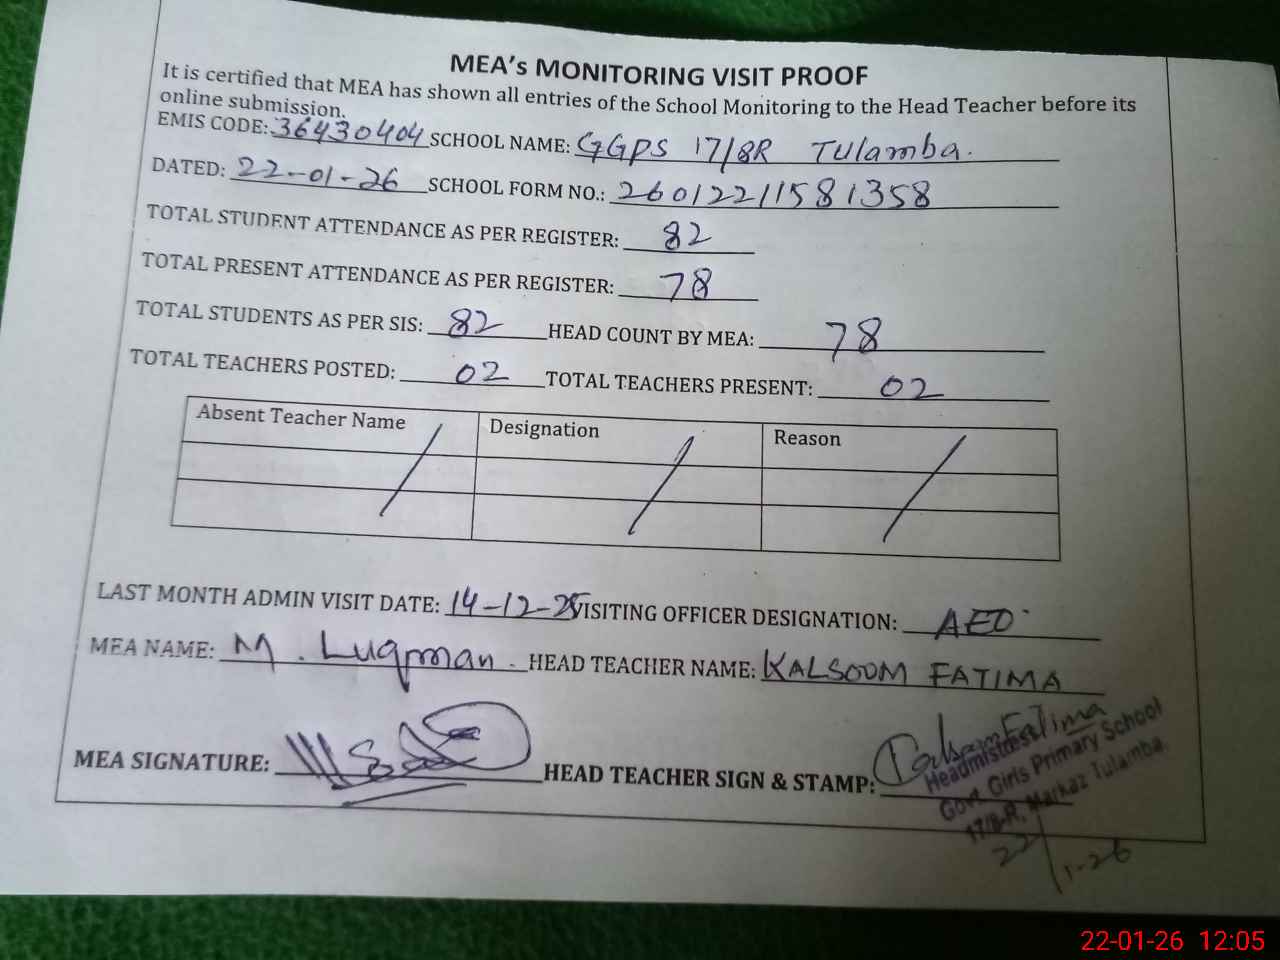 MEA's MONITORING VISIT PROOF
It is certified that MEA has shown all entries of the School Monitoring to the Head Teacher before its
online submission.
EMIS CODE: 36430404 SCHOOL NAME: GGPS 17/8R Tulamba.
DATED: 22-01-26 SCHOOL FORM NO.: 26012211581358
TOTAL STUDENT ATTENDANCE AS PER REGISTER: 82
TOTAL PRESENT ATTENDANCE AS PER REGISTER: 78
TOTAL STUDENTS AS PER SIS: 82 HEAD COUNT BY MEA: 78
TOTAL TEACHERS POSTED: 02 TOTAL TEACHERS PRESENT: 02
Absent Teacher Name Designation Reason
LAST MONTH ADMIN VISIT DATE: 14-12-25 VISITING OFFICER DESIGNATION: AEO
MEA NAME: M. Luqman. HEAD TEACHER NAME: KALSOOM FATIMA
MEA SIGNATURE: HEAD TEACHER SIGN & STAMP: Kalsoom Fatima
Headmistress
Govt. Girls Primary School
17/8-R, Markaz Tulamba.
22/1-26
22-01-26 12:05